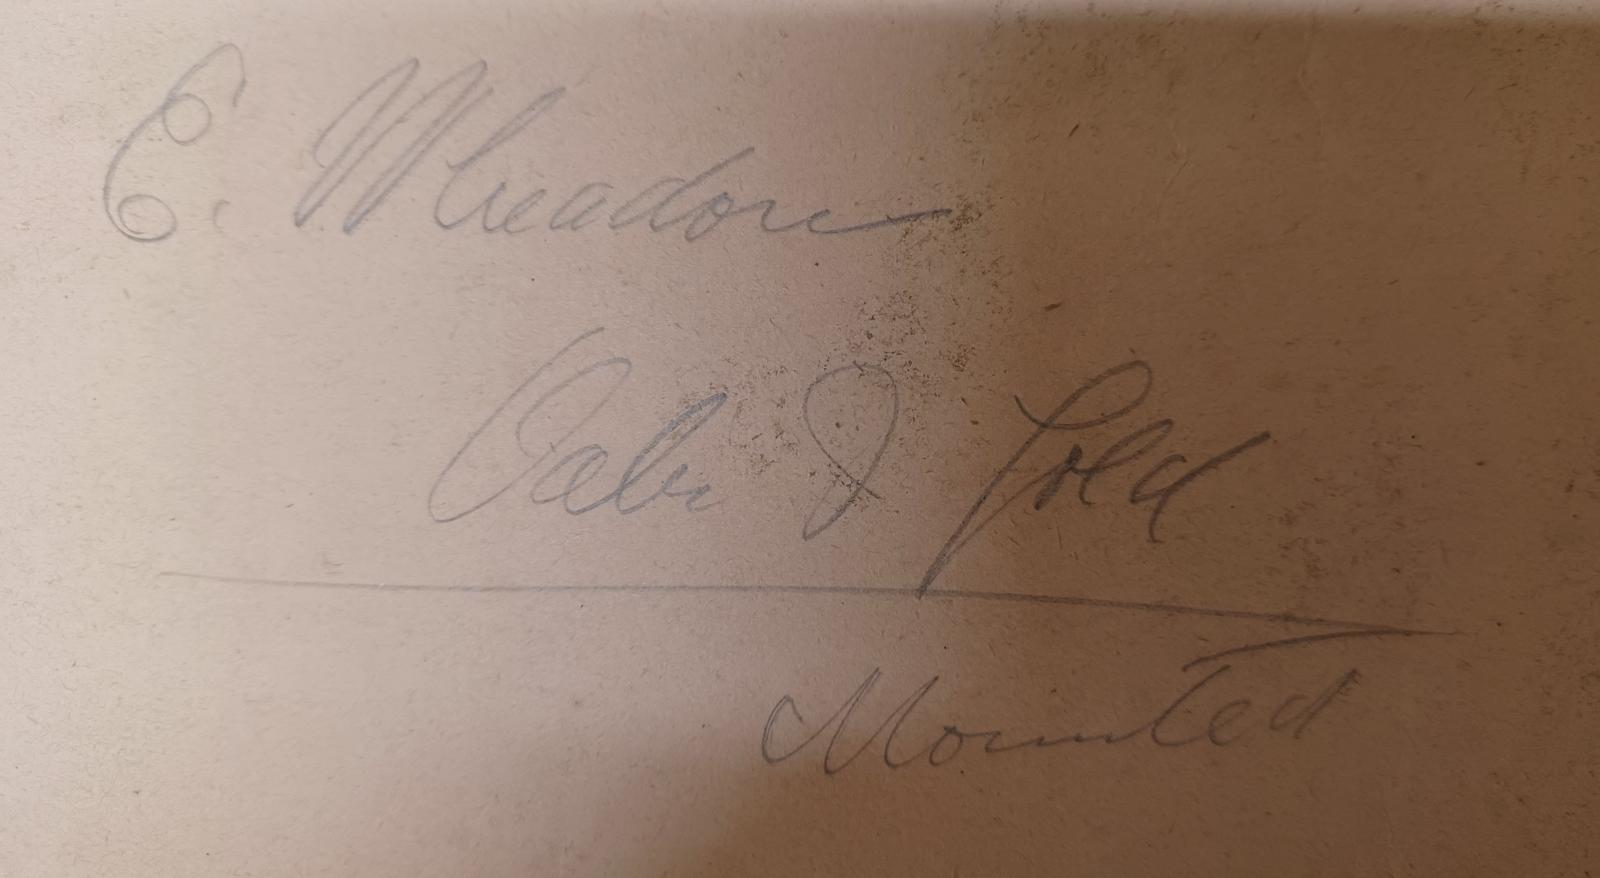 E. Meadow
Oak & Gold
Mounted